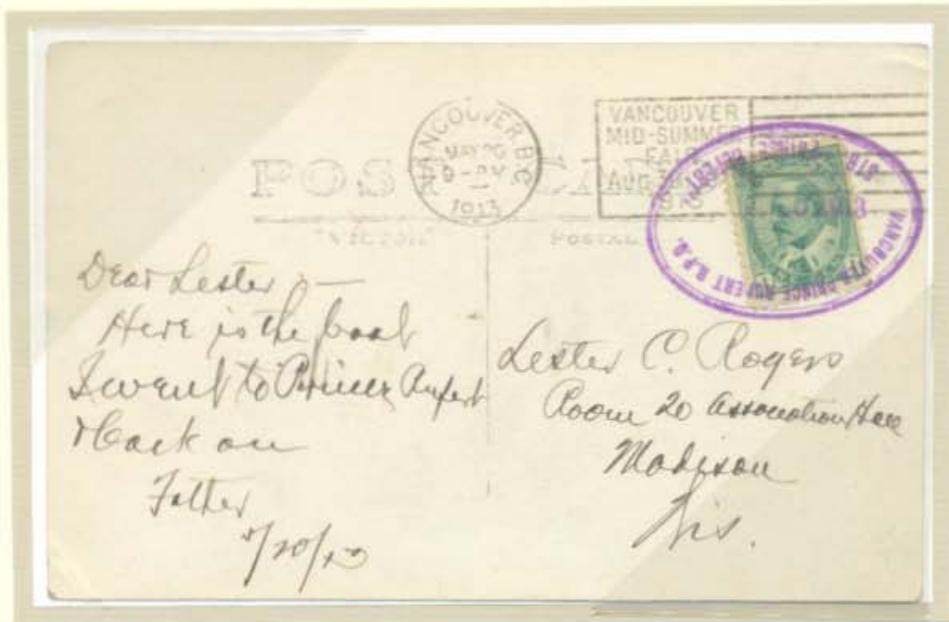 VANCOUVER, B.C.
MAY 20
9 - PM
1913
VANCOUVER
MID-SUMMER
FAIR
AUG
POST CARD
POSTAL
VANCOUVER & PRINCE RUPERT R.P.O.
STR. PRINCE RUPERT
Dear Lester —
Here is the boat
I went to Prince Rupert
& back on
Father
5/20/13
Lester C. Rogers
Room 20 Association Hall
Madison
Wis.